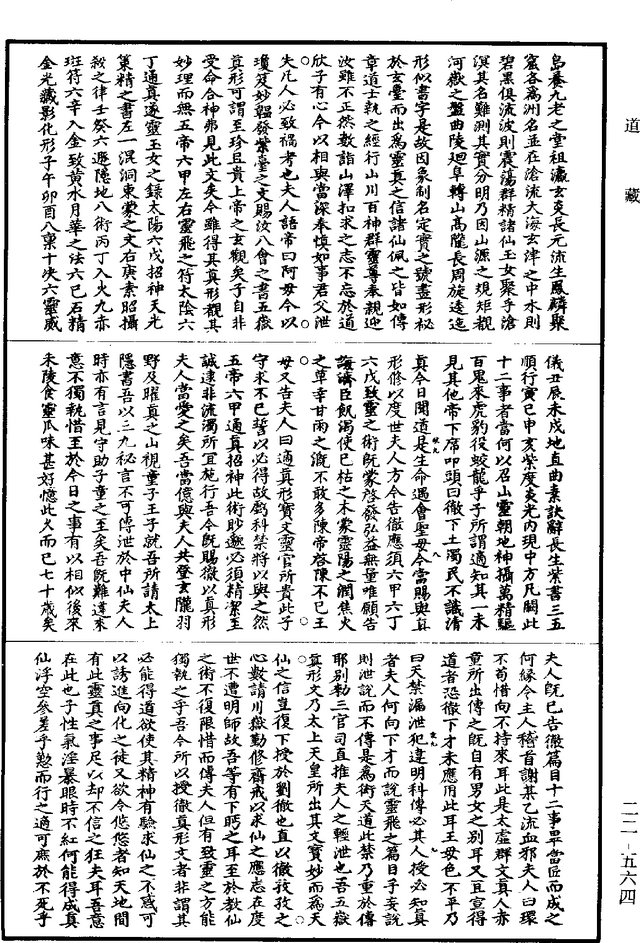 道藏
島養九老之堂祖瀛玄炎長元流生鳳麟聚
窟各為洲名並在滄流大海玄津之中水則
碧黑俱流波則震蕩群精諸仙玉女聚乎滄
溟其名難測其實分明乃因山源之規矩覩
河嶽之盤曲陵廻阜轉山高隴長周旋逶迤
形似書字是故因象制名定實之號畫形秘
於玄臺而出為靈真之信諸仙佩之皆如傳
章道士執之經行山川百神群靈尊奉親迎
汝雖不正然數詣山澤扣求之志不忘於道
欣子有心今以相與當深奉慎如事君父泄
失凡人必致禍考也夫人語帝曰阿母今以
瓊笈妙韞發紫臺之文賜汝八會之書五嶽
真形可謂至珍且貴上帝之玄觀矣子自非
受命合神弗見此文矣今雖得其真形觀其
妙理而無五帝六甲左右靈飛之符太陰六
丁通真逐靈玉女之錄太陽六戊招神天光
策精之書左一溟洞東蒙之文右庚素招攝
殺之律壬癸六遁隱地八術丙丁入火九赤
班符六辛入金致黃水月華之法六已石精
金光藏影化形子午卯酉八稟十決六靈威
儀丑辰未戌地真曲素訣辭長生紫書三五
順行寅巳申亥紫度炎光内視中方凡闕此
十二事者當何以召山靈朝地神攝萬精驅
百鬼來虎豹役蛟龍乎子所謂適知其一未
見其他帝下席叩頭曰徹下土濁民不識清
真今日聞道是生命遇會聖母今當賜與真
形修以度世夫人方今告徹應須六甲六丁
六戊致靈之術既蒙啓發弘益無量唯願告
誨濟臣飢渴使已枯之木蒙靈陽之潤焦火
之草幸甘雨之溉不敢多陳帝啓陳不已王
母又告夫人曰適真形寶文靈官所貴此子
守求不已誓以必得故虧科禁將以與之然
五帝六甲通真招神此術眇邈必須精潔至
誠逮非流濁所宜施行吾今既賜徹以真形
夫人當愛之矣吾當憶與夫人共登玄隴羽
野及曜真之山視童子王子就吾所請太上
隱書吾以三九秘言不可傳泄於中仙夫人
時亦有言見守助子童之至矣吾既難違來
意不獨執惜至於今日之事有以相似後來
朱陵食靈瓜味甚好憶此久而已七十歲矣
夫人既已告徹篇目十二事畢當匠而成之
何緣令主人稽首謝某乙流血邪夫人曰環
不苟惜向不持來耳此是太虛群文真人赤
童所出傳之既自有男女之別耳又宜得
道者恐徹下才未應用此耳王母色不平乃
曰天禁漏泄犯違明科傳必其人授必知真
者夫人何向下才而說靈飛之篇目乎妄說
則泄說而不傳是為衒天道此禁乃重於傳
耶別勑三官司直推夫人之輕泄也吾五嶽
真形文乃太上天皇所出其文寶妙而為天
仙之信豈復下授於劉徹也直以徹孜孜之
心數請川嶽勤修齋戒以求仙之應志在度
世不遭明師故吾等有下眄之耳至於教仙
之術不復限惜而傳夫人但有致靈之方能
獨執之乎吾今所以授徹真形文者非謂其
必能得道欲使其精神有驗求仙之不惑可
以誘進向化之徒又欲令悠悠者知天地間
有此靈真之事足以却不信之狂夫耳吾意
在此也子性氣淫暴眼時不紅何能得成真
仙浮空參差乎懃而行之適可庶於不死乎
二二-五六四